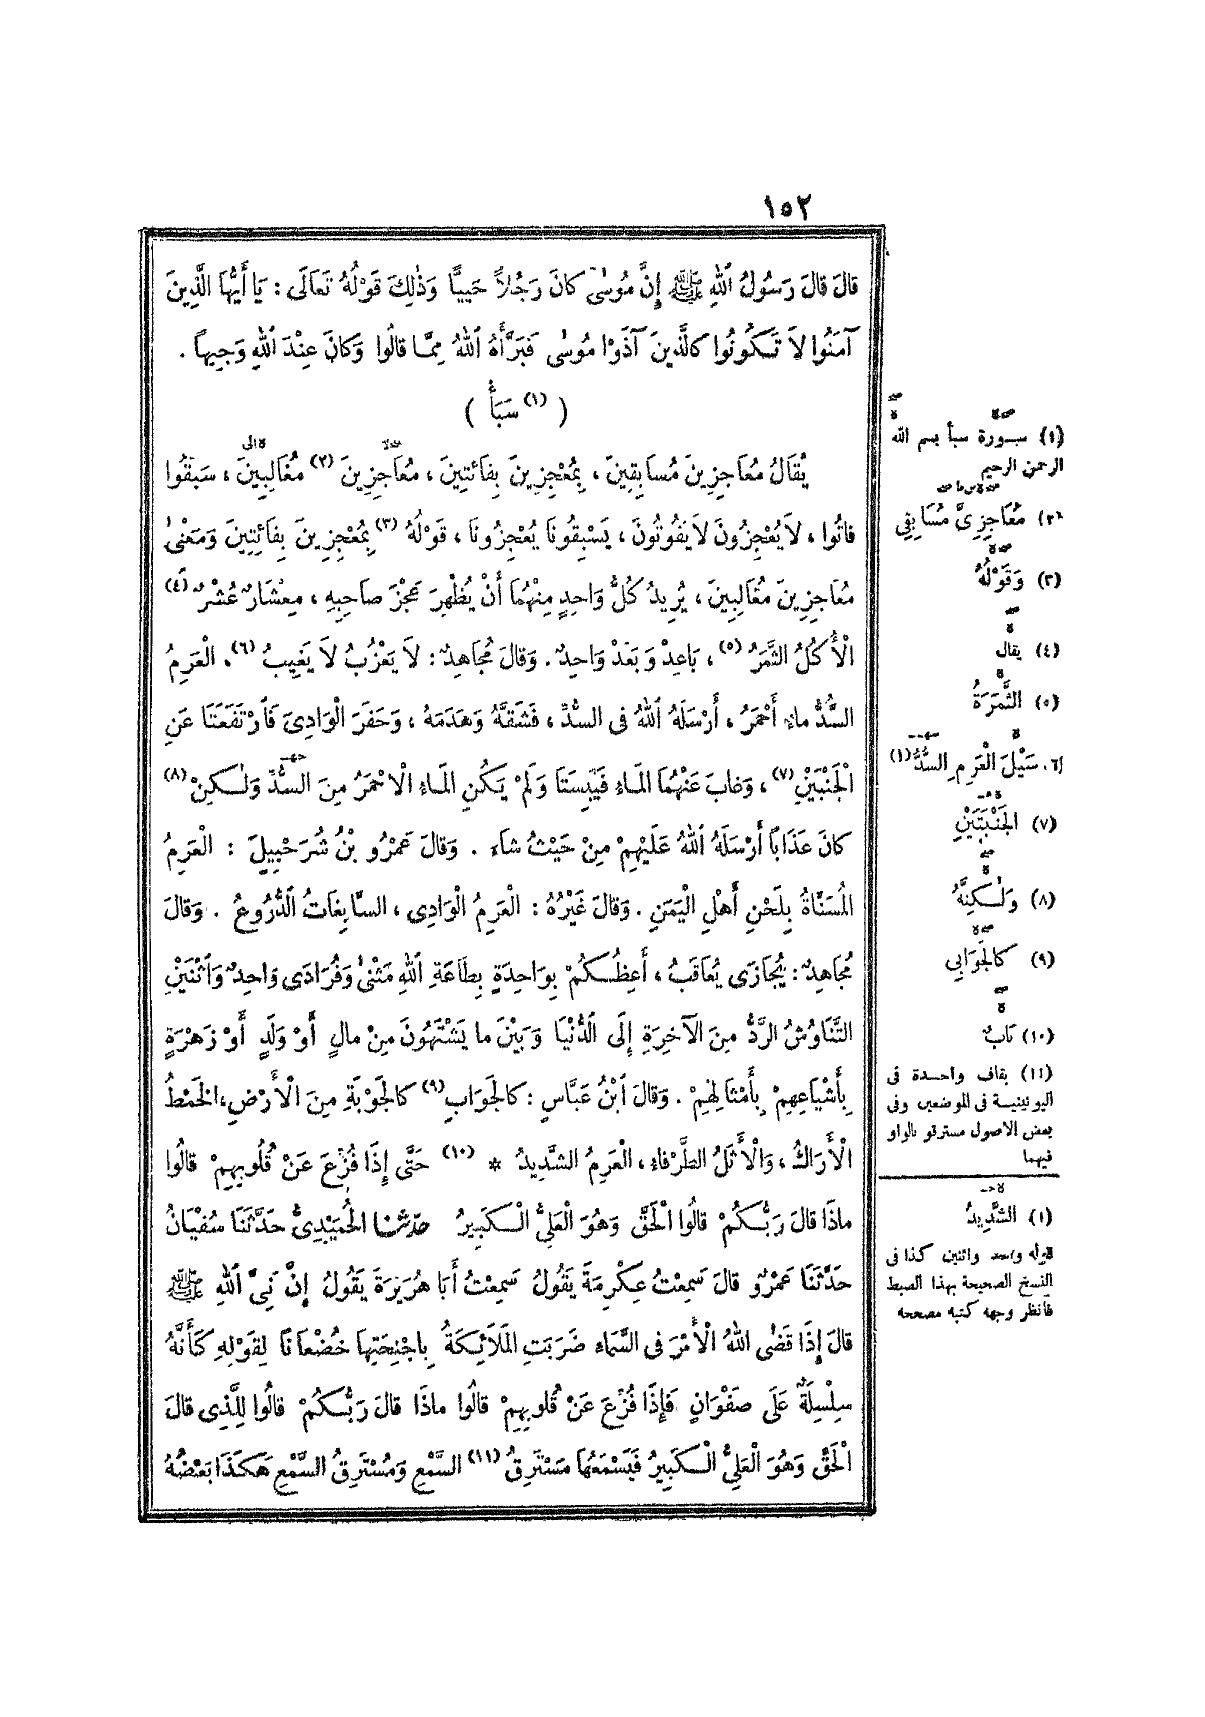 ١٥٢
قالَ قالَ رَسُولُ اللهِ ﷺ إِنَّ مُوسَىٰ كَانَ رَجُلاً حَيِيًّا وَذٰلِكَ قَوْلُهُ تَعَالَى : يَا أَيُّهَا الَّذِينَ
آمَنُوا لاَ تَكُونُوا كَالَّذِينَ آذَوْا مُوسٰى فَبَرَّأَهُ اللهُ مِمَّا قالُوا وَكانَ عِنْدَ اللهِ وَجِيهاً .
( (١) سَبَأُ )
يُقَالُ مُعَاجِزِينَ مُسَابِقِينَ ، بِمُعْجِزِينَ بِفَائِتِينَ ، مُعَاجِزِينَ (٢) مُغَالِبِينَ ، سَبَقُوا
فاتُوا ، لاَ يُعْجِزُونَ لاَ يَفُوتُونَ ، يَسْبِقُونَا يُعْجِزُونَا ، قَوْلُهُ (٣) بِمُعْجِزِينَ بِفَائِتِينَ وَمَعْنٰى
مُعَاجِزِينَ مُغَالِبِينَ ، يُرِيدُ كُلُّ وَاحِدٍ مِنْهُمَا أَنْ يُظْهِرَ عَجْزَ صَاحِبِهِ ، مِعْشَارٌ عُشْرٌ (٤)
الْأُكُلُ الثَّمَرُ (٥) ، بَاعِدْ وَبَعِّدْ وَاحِدٌ . وَقالَ مُجَاهِدٌ : لاَ يَعْزُبُ لاَ يَغِيبُ (٦) . الْعَرِمُ
السُّدُّ ماءٌ أَحْمَرُ ، أَرْسَلَهُ اللهُ فى السُّدِّ ، فَشَقَّهُ وَهَدَمَهُ ، وَحَفَرَ الْوَادِىَ فَارْتَفَعَتَا عَنِ
الْجَنْبَيْنِ (٧) ، وَغابَ عَنْهُمَا المَاءُ فَيَبِسَتَا وَلَمْ يَكُنِ المَاءُ الْاحْمَرُ مِنَ السُّدِّ وَلٰكِنْ (٨)
كانَ عَذَاباً أَرْسَلَهُ اللهُ عَلَيْهِمْ مِنْ حَيْثُ شاءَ . وَقالَ عَمْرُو بْنُ شُرَحْبِيلَ : الْعَرِمُ
المُسَنَّاةُ بِلَحْنِ أَهْلِ الْيَمَنِ . وَقالَ غَيْرُهُ : الْعَرِمُ الْوَادِى ، السَّابِغَاتُ الدُّرُوعُ . وَقالَ
مُجَاهِدٌ : يُجَازَى يُعَاقَبُ ، أَعِظُكُمْ بِوَاحِدَةٍ بِطَاعَةِ اللهِ مَثْنٰى وَفُرَادَى وَاحِدٌ وَاثْنَيْنِ
التَّنَاوُشُ الرَّدُّ مِنَ الآخِرَةِ إِلَى الدُّنْيَا وَبَيْنَ ما يَشْتَهُونَ مِنْ مالٍ أَوْ وَلَدٍ أَوْ زَهْرَةٍ
بِأَشْيَاعِهِمْ بِأَمْثَالِهِمْ . وَقالَ ابْنُ عَبَّاسٍ : كالجَوَابِ (٩) كالجَوْبَةِ مِنَ الْأَرْضِ، الخَمْطُ
الْأَرَاكُ ، وَالْأَثَلُ الطَّرْفاءُ ، الْعَرِمُ الشَّدِيدُ * (١٠) حَتَّى إِذَا فُزِّعَ عَنْ قُلُوبِهِمْ قالُوا
ماذَا قالَ رَبُّكُمْ قالُوا الْحَقَّ وَهُوَ الْعَلِىُّ الْكَبِيرُ حدّثنا الحُمَيْدِىُّ حَدَّثَنَا سُفْيَانُ
حَدَّثَنَا عَمْرٌو قالَ سَمِعْتُ عِكْرِمَةَ يَقُولُ سَمِعْتُ أَبَا هُرَيْرَةَ يَقُولُ إِنَّ نَبِىَّ اللهِ ﷺ
قالَ إِذَا قَضٰى اللهُ الْأَمْرَ فى السَّمَاءِ ضَرَبَتِ المَلاَئِكَةُ بِاجْنِحَتِهَا خُضْعَانًا لِقَوْلِهِ كَأَنَّهُ
سِلْسِلَةٌ عَلَى صَفْوَانٍ فَإِذَا فُزِّعَ عَنْ قُلُوبِهِمْ قالُوا ماذَا قالَ رَبُّكُمْ قالُوا لِلَّذِى قالَ
الْحَقَّ وَهُوَ الْعَلِىُّ الْكَبِيرُ فَيَسْمَعُهَا مُسْتَرِقُ (١١) السَّمْعِ وَمُسْتَرِقُ السَّمْعِ هَكَذَا بَعْضُهُ
(١) سورة سبأ بسم الله
الرحمن الرحيم
(٢) مُعَاجِزِىَّ مُسَابِقِى
(٣) وَقَوْلُهُ
(٤) يقال
(٥) الثَّمَرَةُ
(٦) سَيْلَ الْعَرِمِ السُّدُّ (١)
(٧) الجَنْبَتَيْنِ
(٨) وَلٰكِنَّهُ
(٩) كالجَوَابِى
(١٠) بَابٌ
(١١) بقاف واحدة فى
اليونينية فى الموضعين وفى
بعض الاصول مسترقو بالواو
فيهما
(١) الشَّدِيدُ
قوله واحد واثنين كذا فى
النسخ الصحيحة بهذا الضبط
فانظر وجهه كتبه مصححه